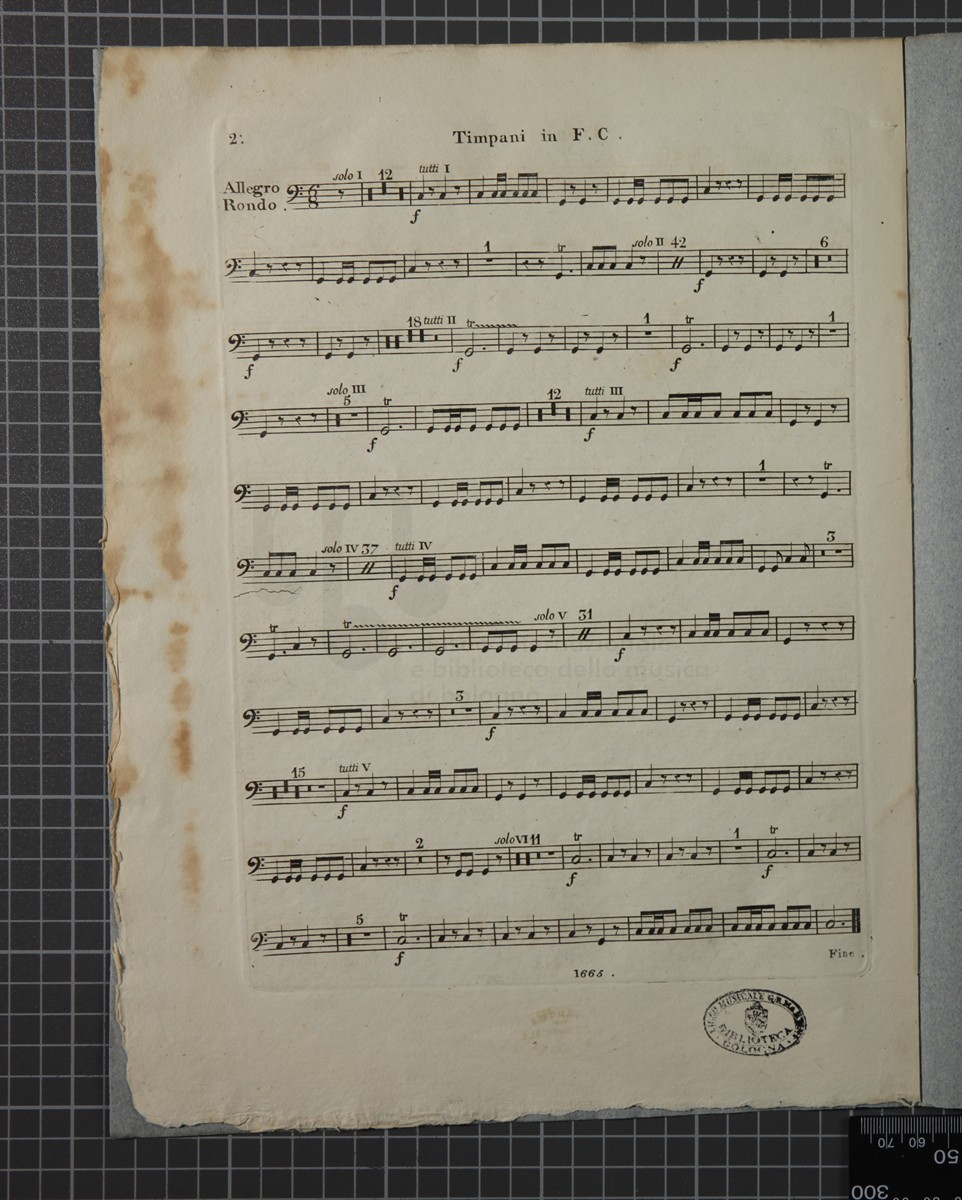 2.
Timpani in F. C .
Allegro
Rondo .
solo I 12 tutti I
f
1 tr solo II 42 6
f
18 tutti II tr 1 tr 1
f f f
solo III 5 tr 12 tutti III
f f
1 tr
solo IV 37 tutti IV 3
f
tr tr solo V 31
f
e biblioteca della musica
di bologna
3
f
15 tutti V
f
2 solo VI 11 tr 1 tr
f f
5 tr
f
Fine .
1665 .
BIBLIOTECA
BOLOGNA
70 60 50
300